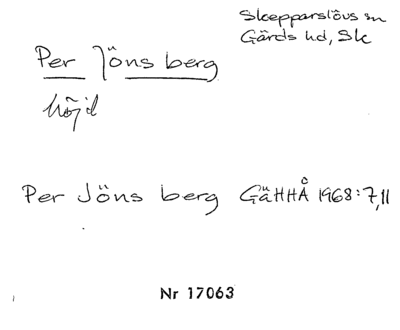 Skepparslövs sn
Gärds hd, Sk
Per Jöns berg
höjd
Per Jöns berg GäHHÅ 1968:7,11
Nr 17063